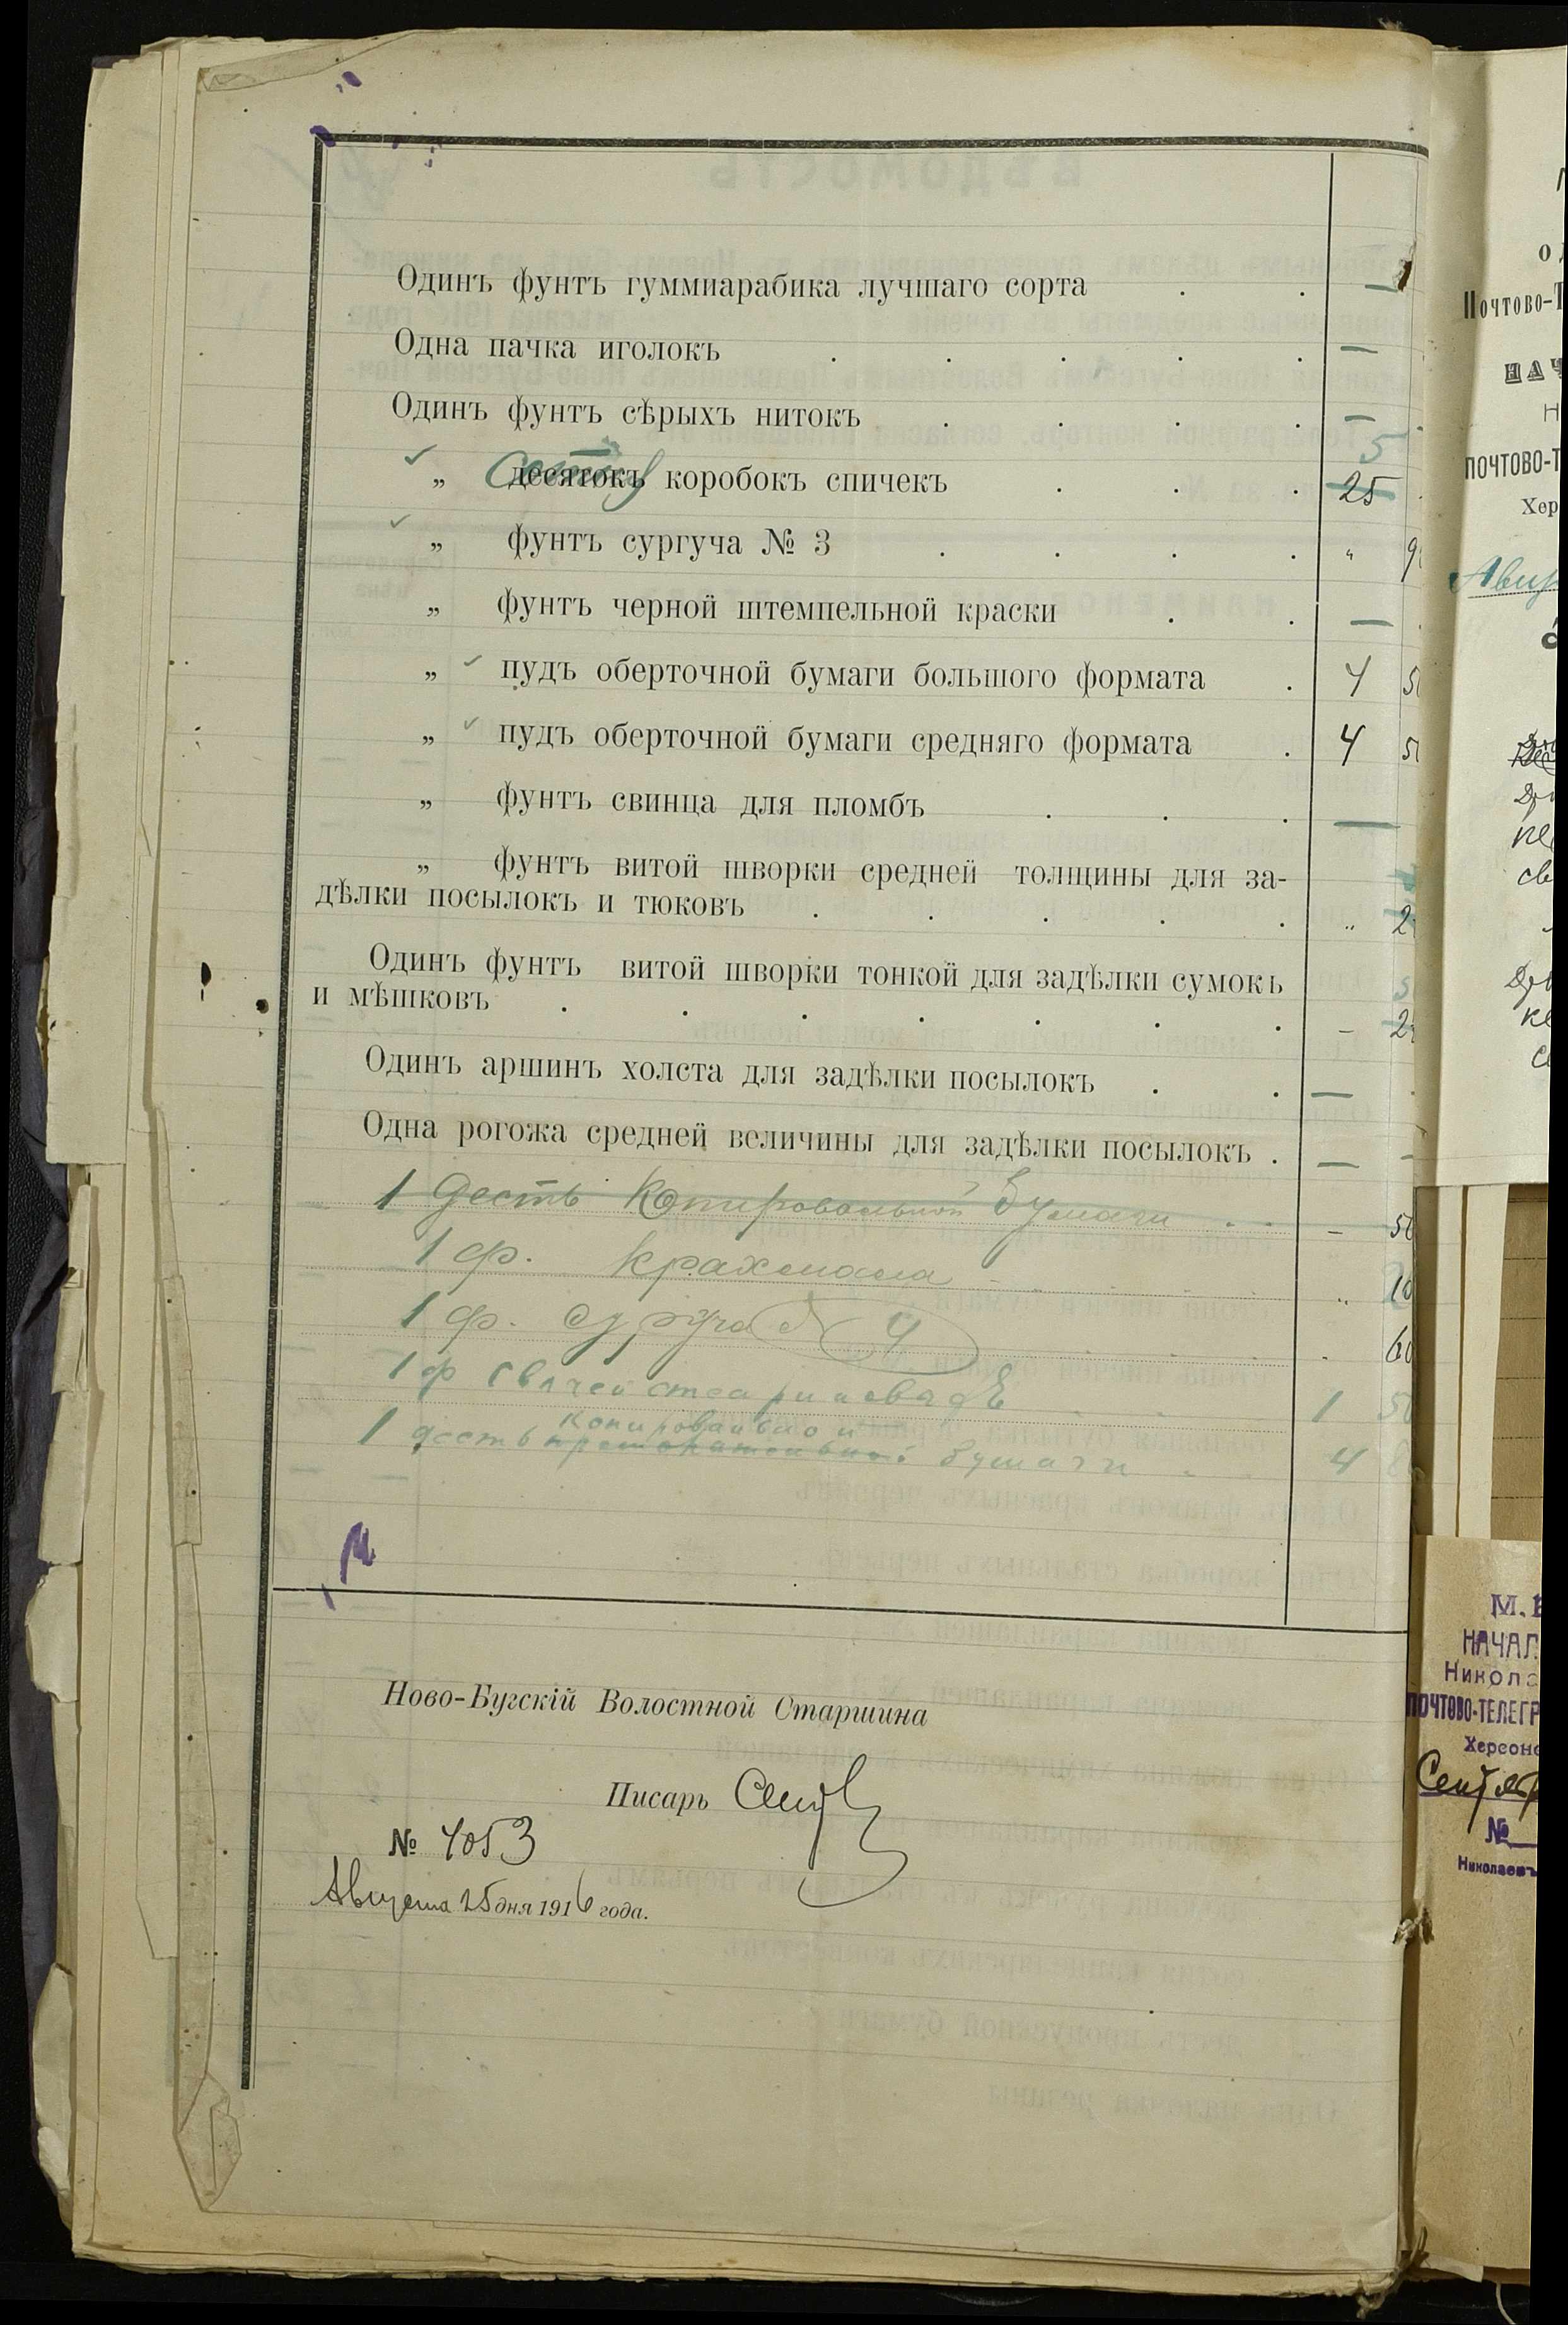 Одинъ фунтъ гуммиарабика лучшаго сорта . . —
Одна пачка иголокъ . . . . . —
Одинъ фунтъ сѣрыхъ нитокъ . . . . —
„ десятокъ коробокъ спичекъ . . . 25 5
„ фунтъ сургуча № 3 . . . . „ 9
„ фунтъ черной штемпельной краски . . —
„ пудъ оберточной бумаги большого формата . 4 5
„ пудъ оберточной бумаги средняго формата . 4 5
„ фунтъ свинца для пломбъ . . . —
„ фунтъ витой шворки средней толщины для за-
дѣлки посылокъ и тюковъ . . . . . „ 2
Одинъ фунтъ витой шворки тонкой для задѣлки сумокъ
и мѣшковъ . . . . . . . – 2
Одинъ аршинъ холста для задѣлки посылокъ . . —
Одна рогожа средней величины для задѣлки посылокъ . — -
1 Десть Копировальной бумаги . . – 50
1 ф. крахмала „ 10
1 ф. сургуча № 4 . 60
1 ф свѣчей стеариновыхъ 1 50
копировальной
1 десть бумаги 4
Ново-Бугскій Волостной Старшина
Писарь
№ 4053
Августа 25 дня 1916 года.
Почтово-Т
НАЧ
ПОЧТОВО-Т
Хер
М. В
НАЧАЛ
Никола
ПОЧТОВО-ТЕЛЕГР
Херсонс
Сентяб
№
Николаевъ